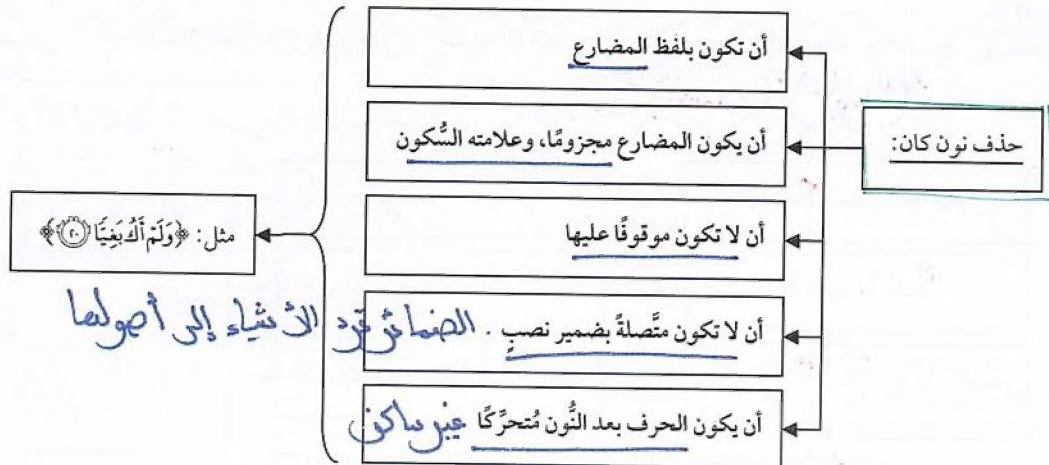 حذف نون كان:
أن تكون بلفظ المضارع
أن يكون المضارع مجزومًا، وعلامته السُّكون
أن لا تكون موقوفًا عليها
أن لا تكون متَّصلةً بضمير نصبٍ . الضمائر ترد الأشياء إلى أصولها
أن يكون الحرف بعد النُّون مُتحرِّكًا غير ساكن
مثل: ﴿وَلَمْ أَكُ بَغِيًّا ٢٠﴾